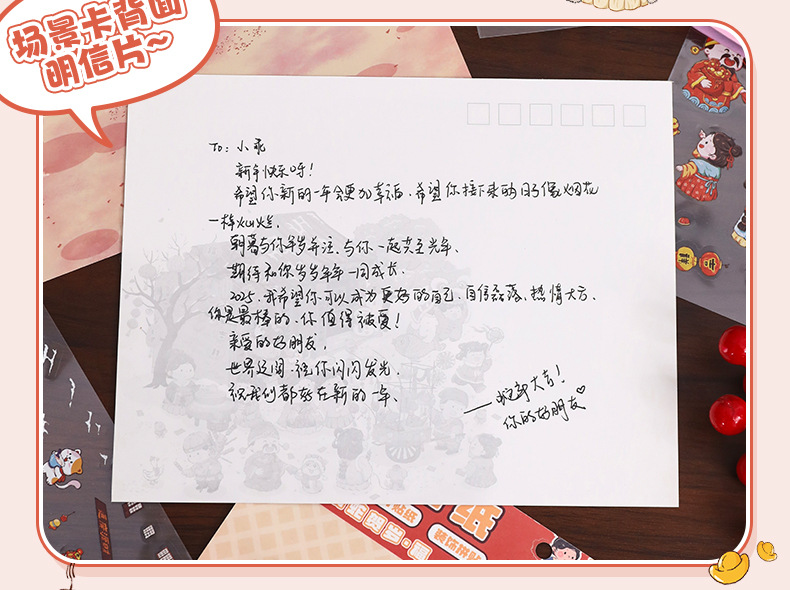 场景卡背面
明信片~
To: 小乖
新年快乐呀!
希望你新的一年会更加幸福、希望你接下来的日子像烟花
一样灿烂。
朝暮与你年岁并往、与你一起共至光年、
期待和你岁岁年年一同成长.
2025.我希望你可以成为更好的自己、自信磊落、热情大方、
你是最棒的、你值得被爱!
亲爱的好朋友,
世界辽阔、祝你闪闪发光.
祝我们都好在新的一年、
——蛇年大吉!
你的好朋友
纸
贴纸
装饰拼贴